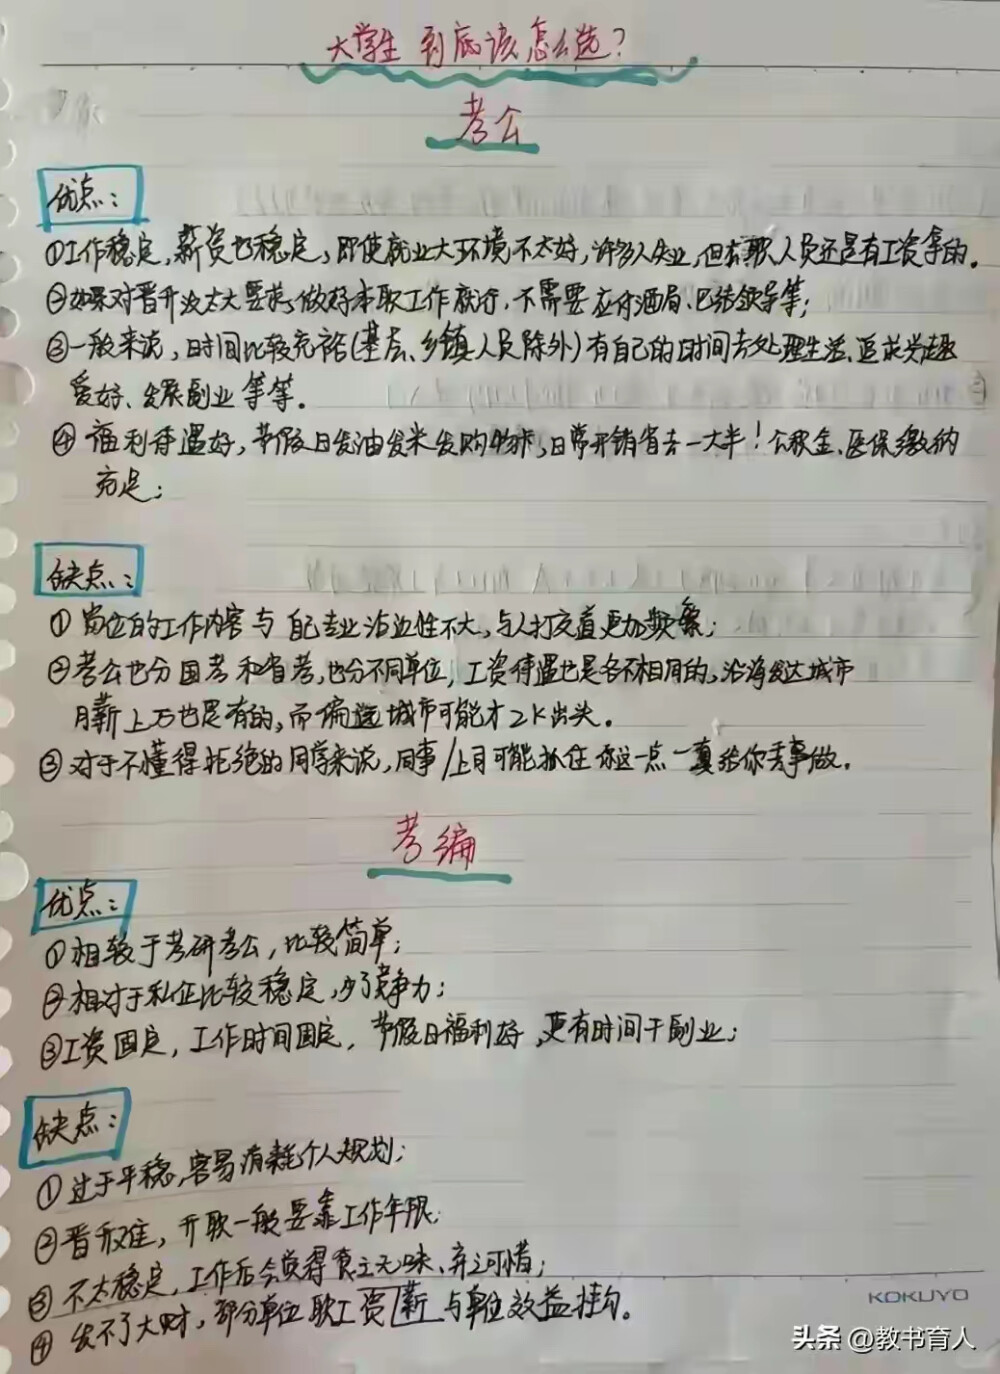 大学生到底该怎么选?
考公
优点:
①工作稳定,薪资也稳定,即使就业大环境不太好,许多人失业,但在职人员还是有工资拿的。
②如果对晋升没太大要求,做好本职工作就行,不需要应付酒局、巴结领导等;
③一般来说,时间比较充裕(基层、乡镇人员除外)有自己的时间去处理生活、追求兴趣
爱好、发展副业等等。
④福利待遇好,节假日发油发米发购物卡,日常开销省去一大半!公积金、医保缴纳
充足;
缺点:
①岗位的工作内容与自己专业沾边性不大,与人打交道更加频繁;
②考公也分国考和省考,也分不同单位,工资待遇也是各不相同的,沿海发达城市
月薪上万也是有的,而偏远城市可能才2K出头。
③对于不懂得拒绝的同学来说,同事/上司可能抓住你这一点一直给你丢事做。
考编
优点:
①相较于考研考公,比较简单;
②相对于私企比较稳定,少了竞争力;
③工资固定,工作时间固定,节假日福利好,更有时间干副业;
缺点:
①过于平稳,容易消耗个人规划;
②晋升难,升职一般要靠工作年限;
③不太稳定,工作后会觉得食之无味、弃之可惜;
④发不了大财,部分单位职工资/薪与单位效益挂勾。
KOKUYO
头条@教书育人